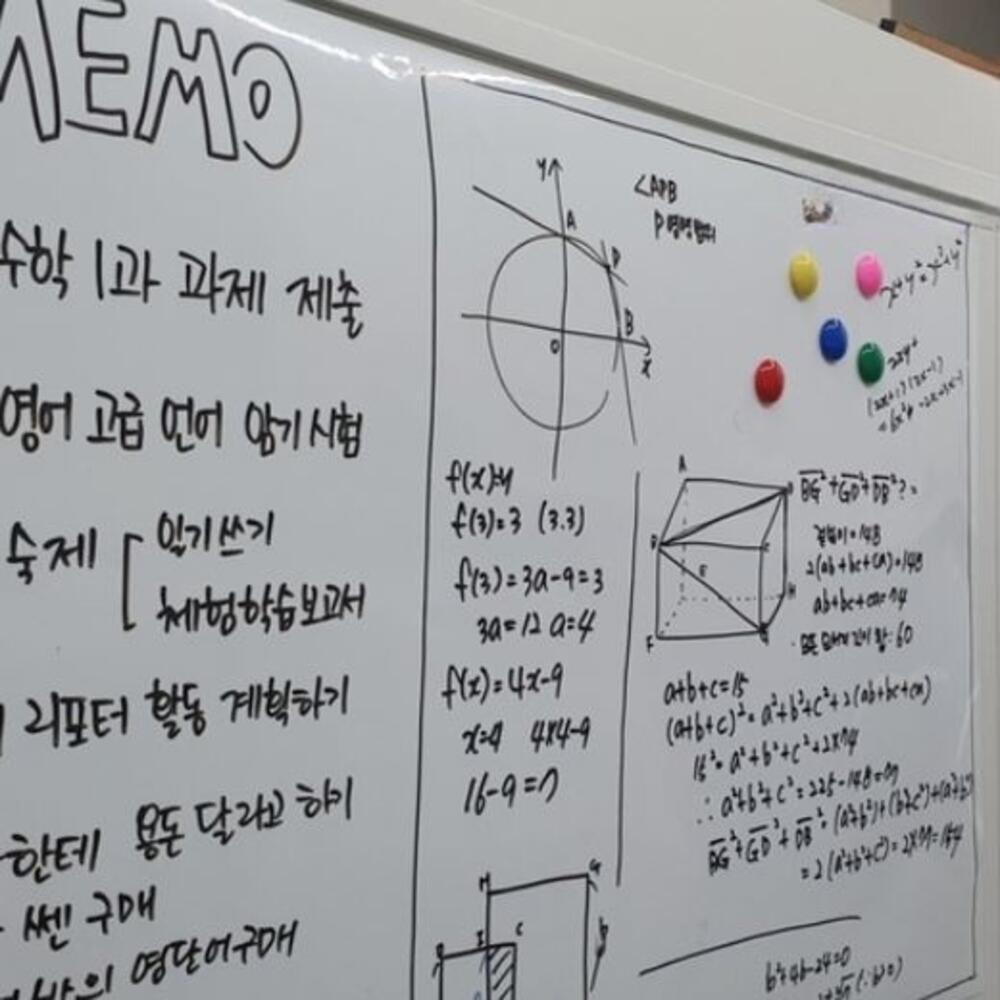 MEMO
수학 1과 과제 제출
영어 고급 언어 암기시험
숙제 [ 일기쓰기
체험학습보고서
리포터 활동 계획하기
한테 용돈 달라고 하기
쎈 구매
영단어구매
y
A
P
B
O
x
∠APB
f(x)=y
f(3)=3 (3.3)
f(3)=3a-9=3
3a=12 a=4
f(x)=4x-9
4x4-9
16-9=7
H
G
I
C
(2x+1)(3x-1)
A
E
H
F
BG²+GD²+DB²?=
겉넓이=148
2(ab+bc+ca)=148
ab+bc+ca=74
모든 모서리 길이 합:60
a+b+c=15
(a+b+c)²=a²+b²+c²+2(ab+bc+ca)
15²=a²+b²+c²+2×74
∴a²+b²+c²=225-148=77
BG²+GD²+DB²=(a²+b²)+(b²+c²)+(a²+b²)
=2(a²+b²+c²)=2×77=154
b²+4b-24=0